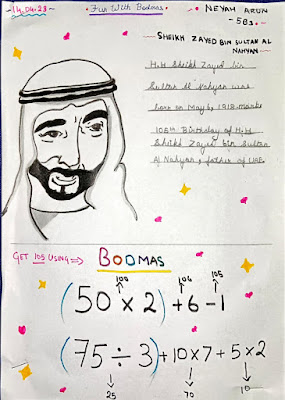 14.04.23
Fun With Bodmas
NEYAH ARUN
- 5B2.
SHEIKH ZAYED BIN SULTAN AL
NAHYAN
H.H Sheikh Zayed bin
Sultan Al Nahyan was
born on May 6, 1918. marks
105th Birthday of H.H
Sheikh Zayed bin Sultan
Al Nahyan, father of UAE.
GET 105 USING ⇒ BODMAS
100 106 105
(50 × 2) + 6 - 1
(75 ÷ 3) + 10 × 7 + 5 × 2
25 70 10